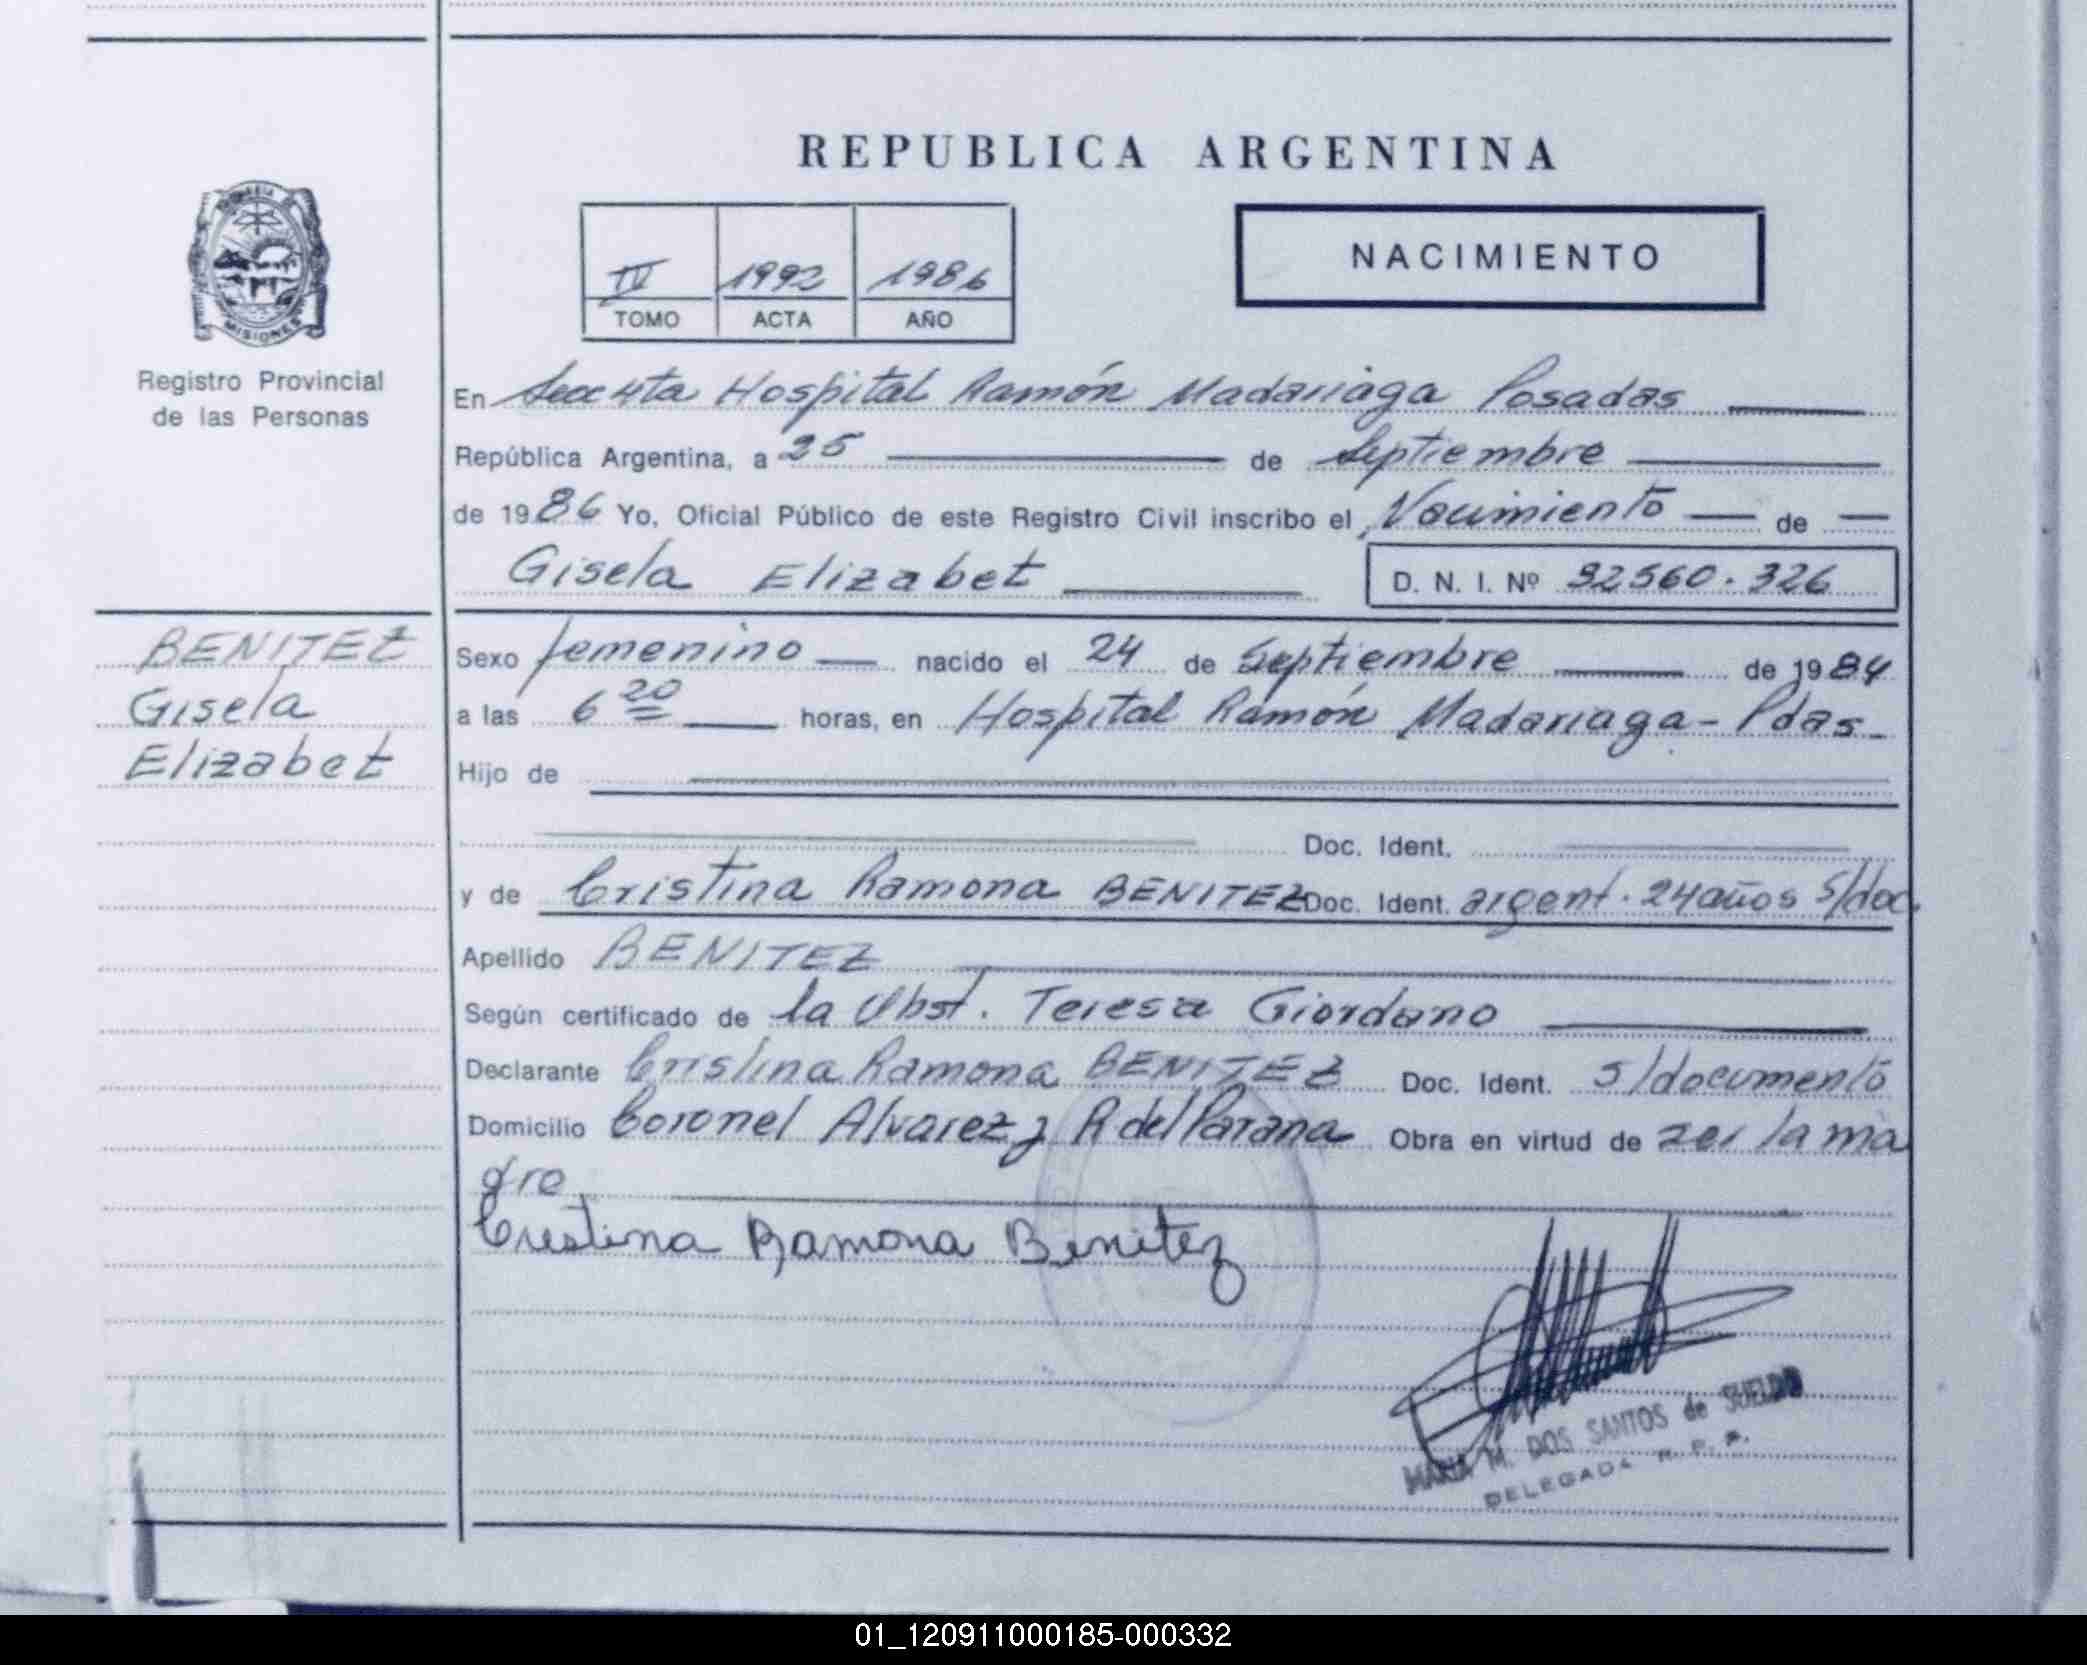 REPUBLICA ARGENTINA
NACIMIENTO
IV 1992 1986
TOMO ACTA AÑO
MISIONES
Registro Provincial
de las Personas
En Secc 4ta Hospital Ramón Madariaga Posadas
República Argentina, a 25 de Septiembre
de 1986 Yo, Oficial Público de este Registro Civil inscribo el Nacimiento de
Gisela Elizabet D. N. I. Nº 32560.326
BENITEZ
Gisela
Elizabet
Sexo femenino nacido el 24 de Septiembre de 1984
a las 6 20 horas, en Hospital Ramón Madariaga - Pdas
Hijo de
Doc. Ident.
y de Cristina Ramona BENITEZ Doc. Ident. argent. 24 años s/doc.
Apellido BENITEZ
Según certificado de la Obst. Teresa Giordano
Declarante Cristina Ramona BENITEZ Doc. Ident. s/documento
Domicilio Coronel Alvarez y R del Parana Obra en virtud de ser la ma
dre
Cristina Ramona Benitez
MARIA M. DOS SANTOS de SUELDO
DELEGADA R. P. P.
01_120911000185-000332